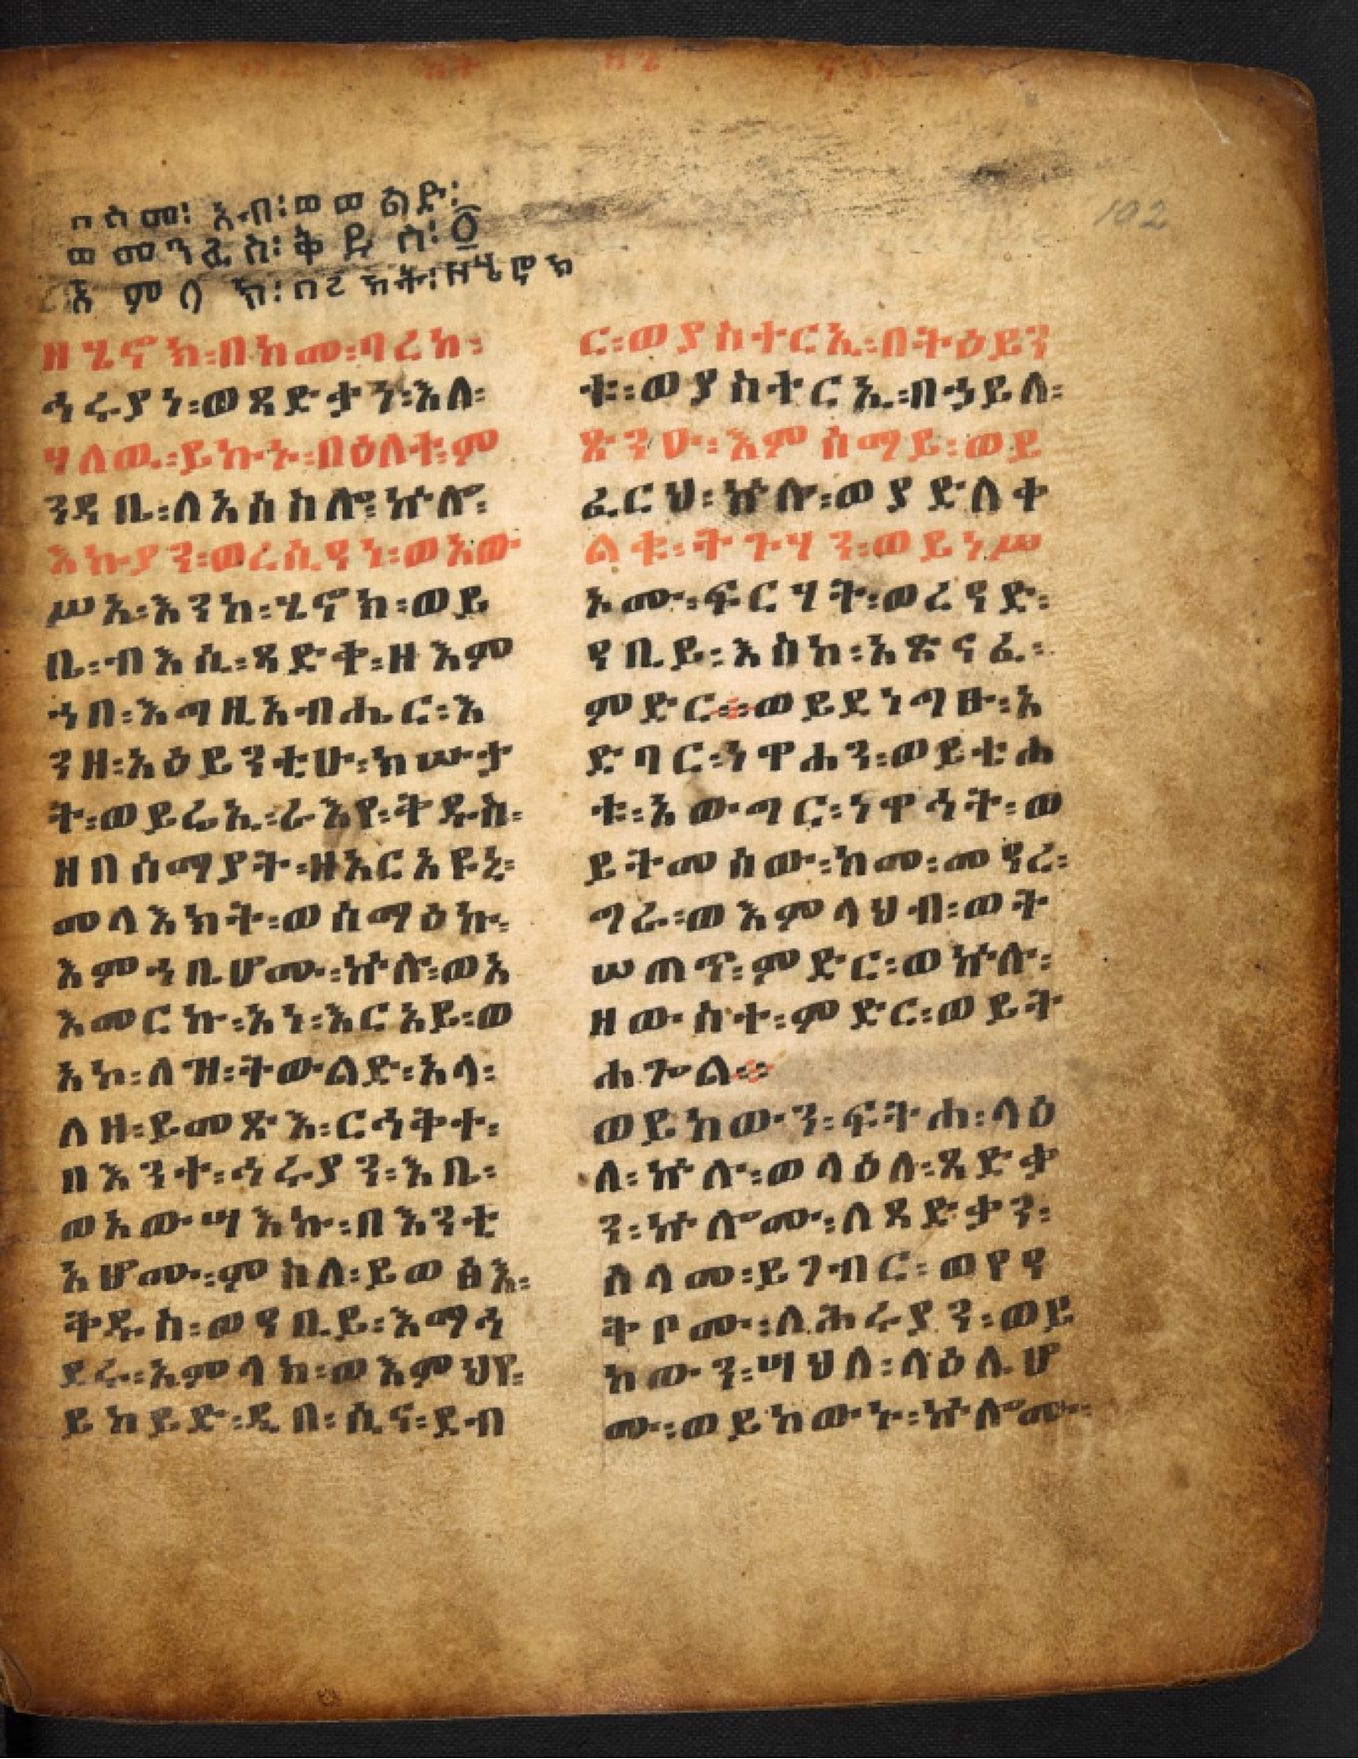 በስመ፡ አብ፡ወወልድ፡
ወመንፈስ፡ቅዱስ፡፩
አምላክ፡በረከት፡ዘሄኖክ
ዘሄኖክ፡በከመ፡ባረከ፡
ኅሩያነ፡ወጻድቃን፡እለ፡
ሃለዉ፡ይኩኑ፡በዕለተ፡ም
ንዳቤ፡ለአሰስሎ፡ኵሎ፡
እኩያን፡ወረሲዓነ፡ወአው
ሥአ፡እንከ፡ሄኖክ፡ወይ
ቤ፡ብእሲ፡ጻድቅ፡ዘእም
ኀበ፡እግዚአብሔር፡እ
ንዘ፡አዕይንቲሁ፡ክሡታ
ት፡ወይሬኢ፡ራእየ፡ቅዱስ፡
ዘበሰማያት፡ዘአርአዩኒ፡
መላእክት፡ወሰማዕኩ፡
እምኀቤሆሙ፡ኵሎ፡ወአ
እመርኩ፡አነ፡እርአይ፡ወ
አኮ፡ለዝ፡ትውልድ፡አላ፡
ለዘ፡ይመጽእ፡ርኅቅተ፡
በእንተ፡ኅሩያን፡እቤ፡
ወአውሣእኩ፡በእንቲ
አሆሙ፡ምስለ፡ይወፅእ፡
ቅዱስ፡ወዓቢይ፡እማኅ
ደሩ፡አምላክ፡ወእምህየ፡
ይከይድ፡ዲበ፡ሲና፡ደብ
ር፡ወያስተርኢ፡በትዕይን
ቱ፡ወያስተርኢ፡በኃይለ፡
ጽንሁ፡እምሰማይ፡ወይ
ፈርህ፡ኵሉ፡ወያድለቀ
ልቁ፡ትጉሃን፡ወይነሥ
አሙ፡ፍርሃት፡ወረዓድ፡
ዓቢይ፡እስከ፡አጽናፈ፡
ምድር፡፡ወይደነግፁ፡አ
ድባር፡ነዋሐን፡ወይቴሐ
ቱ፡አውግር፡ነዋኅት፡ወ
ይትመሰው፡ከመ፡መዓረ፡
ግራ፡ወእምላህብ፡ወት
ሠጠጥ፡ምድር፡ወኵሉ፡
ዘውስተ፡ምድር፡ወይት
ሐጐል፡፡
ወይከውን፡ፍትሐ፡ላዕ
ለ፡ኵሉ፡ወላዕለ፡ጻድቃ
ን፡ኵሎሙ፡ለጻድቃን፡
ሰላመ፡ይገብር፡ወየዓ
ቅቦሙ፡ለኅሩያን፡ወይ
ከውን፡ሣህለ፡ላዕሌሆ
ሙ፡ወይከውኑ፡ኵሎሙ፡
102